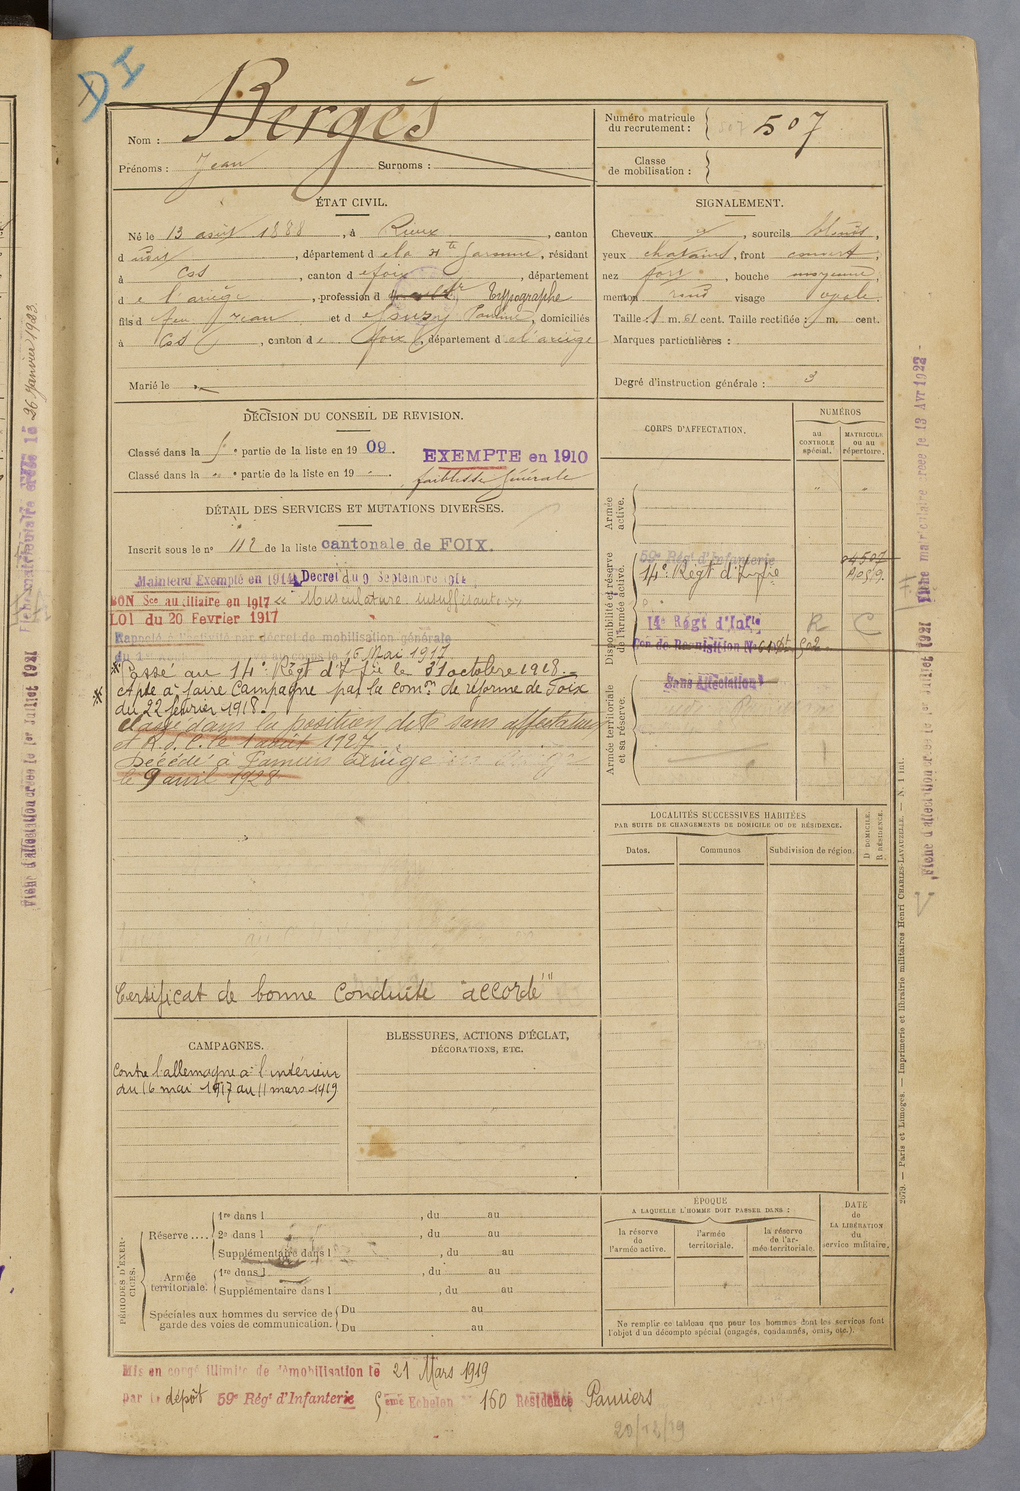 DI
Nom : Bergès
Prénoms : Jean Surnoms :
Numéro matricule du recrutement : 507
Classe de mobilisation :
ÉTAT CIVIL.
Né le 13 août 1888, à Rieux, canton
d udit, département d e la Hte Garonne, résidant
à Cos, canton d e foix, département
d e l'ariège, profession d Typographe
fils d e feu Jean et d e Pauline, domiciliés
à Cos, canton d e foix, département d e l'ariège
Marié le
SIGNALEMENT.
Cheveux, sourcils blonds,
yeux chatains, front couvert,
nez fort, bouche moyenne,
menton rond visage ovale.
Taille : 1 m. 61 cent. Taille rectifiée : 1 m. cent.
Marques particulières :
Degré d'instruction générale : 3
DÉCISION DU CONSEIL DE REVISION.
Classé dans la 5e partie de la liste en 1909.
Classé dans la " e partie de la liste en 19 "
EXEMPTE en 1910
faiblesse générale
DÉTAIL DES SERVICES ET MUTATIONS DIVERSES.
Inscrit sous le no 112 de la liste cantonale de FOIX.
Maintenu Exempté en 1914 Décret du 9 Septembre 1914
BON Sce auxiliaire en 1917 « Musculature insuffisante »
LOI du 20 Fevrier 1917
Rappelé à l'activité par décret de mobilisation générale
16 Mai 1917
Passé au 14e Régt d'Ifie le 31 octobre 1918.
Apte à faire campagne par la comon de réforme de Foix
du 22 février 1918.
Classé dans la position dite sans affectation
et R.d.C. le 1 août 1927
Décédé à Pamiers Ariège
le 9 avril 1928
Certificat de bonne conduite "accordé"
CORPS D'AFFECTATION.
NUMÉROS
au CONTRÔLE spécial.
MATRICULE ou au répertoire.
Armée active.
Disponibilité et réserve de l'armée active.
59e Régt d'Infanterie
14e Régt d'Ifie
14e Régt d'Infie R C
Armée territoriale et sa réserve.
Sans Affectation
LOCALITÉS SUCCESSIVES HABITÉES
PAR SUITE DE CHANGEMENTS DE DOMICILE OU DE RÉSIDENCE.
Dates. Communes Subdivision de région. D DOMICILE. R RÉSIDENCE.
CAMPAGNES.
Contre l'allemagne à l'intérieur
du 16 mai 1917 au 11 mars 1919
BLESSURES, ACTIONS D'ÉCLAT,
DÉCORATIONS, ETC.
PÉRIODES D'EXERCICES.
Réserve .... 1re dans l , du au
2e dans l , du au
Supplémentaire dans l , du au
Armée territoriale. 1re dans l , du au
Supplémentaire dans l , du au
Spéciales aux hommes du service de garde des voies de communication. Du au
Du au
ÉPOQUE
A LAQUELLE L'HOMME DOIT PASSER DANS :
la réserve de l'armée active.
l'armée territoriale.
la réserve de l'armée territoriale.
DATE de LA LIBÉRATION du service militaire.
Ne remplir ce tableau que pour les hommes dont les services font
l'objet d'un décompte spécial (engagés, condamnés, omis, etc.).
Mis en congé illimité de démobilisation le 21 Mars 1919
par le dépôt 59e Régt d'Infanterie 5ème Echelon 160 Résidence Pamiers
20/12/19
2079. — Paris et Limoges. — Imprimerie et librairie militaires Henri CHARLES-LAVAUZELLE. — N. 1 int.
Fiche matriculaire créée le 13 Avr 1922
Fiche d'affectation créée le 1er Juillet 1921
Fiche matriculaire créée le 26 Janvier 1923
Fiche d'affectation créée le 1er Juillet 1921